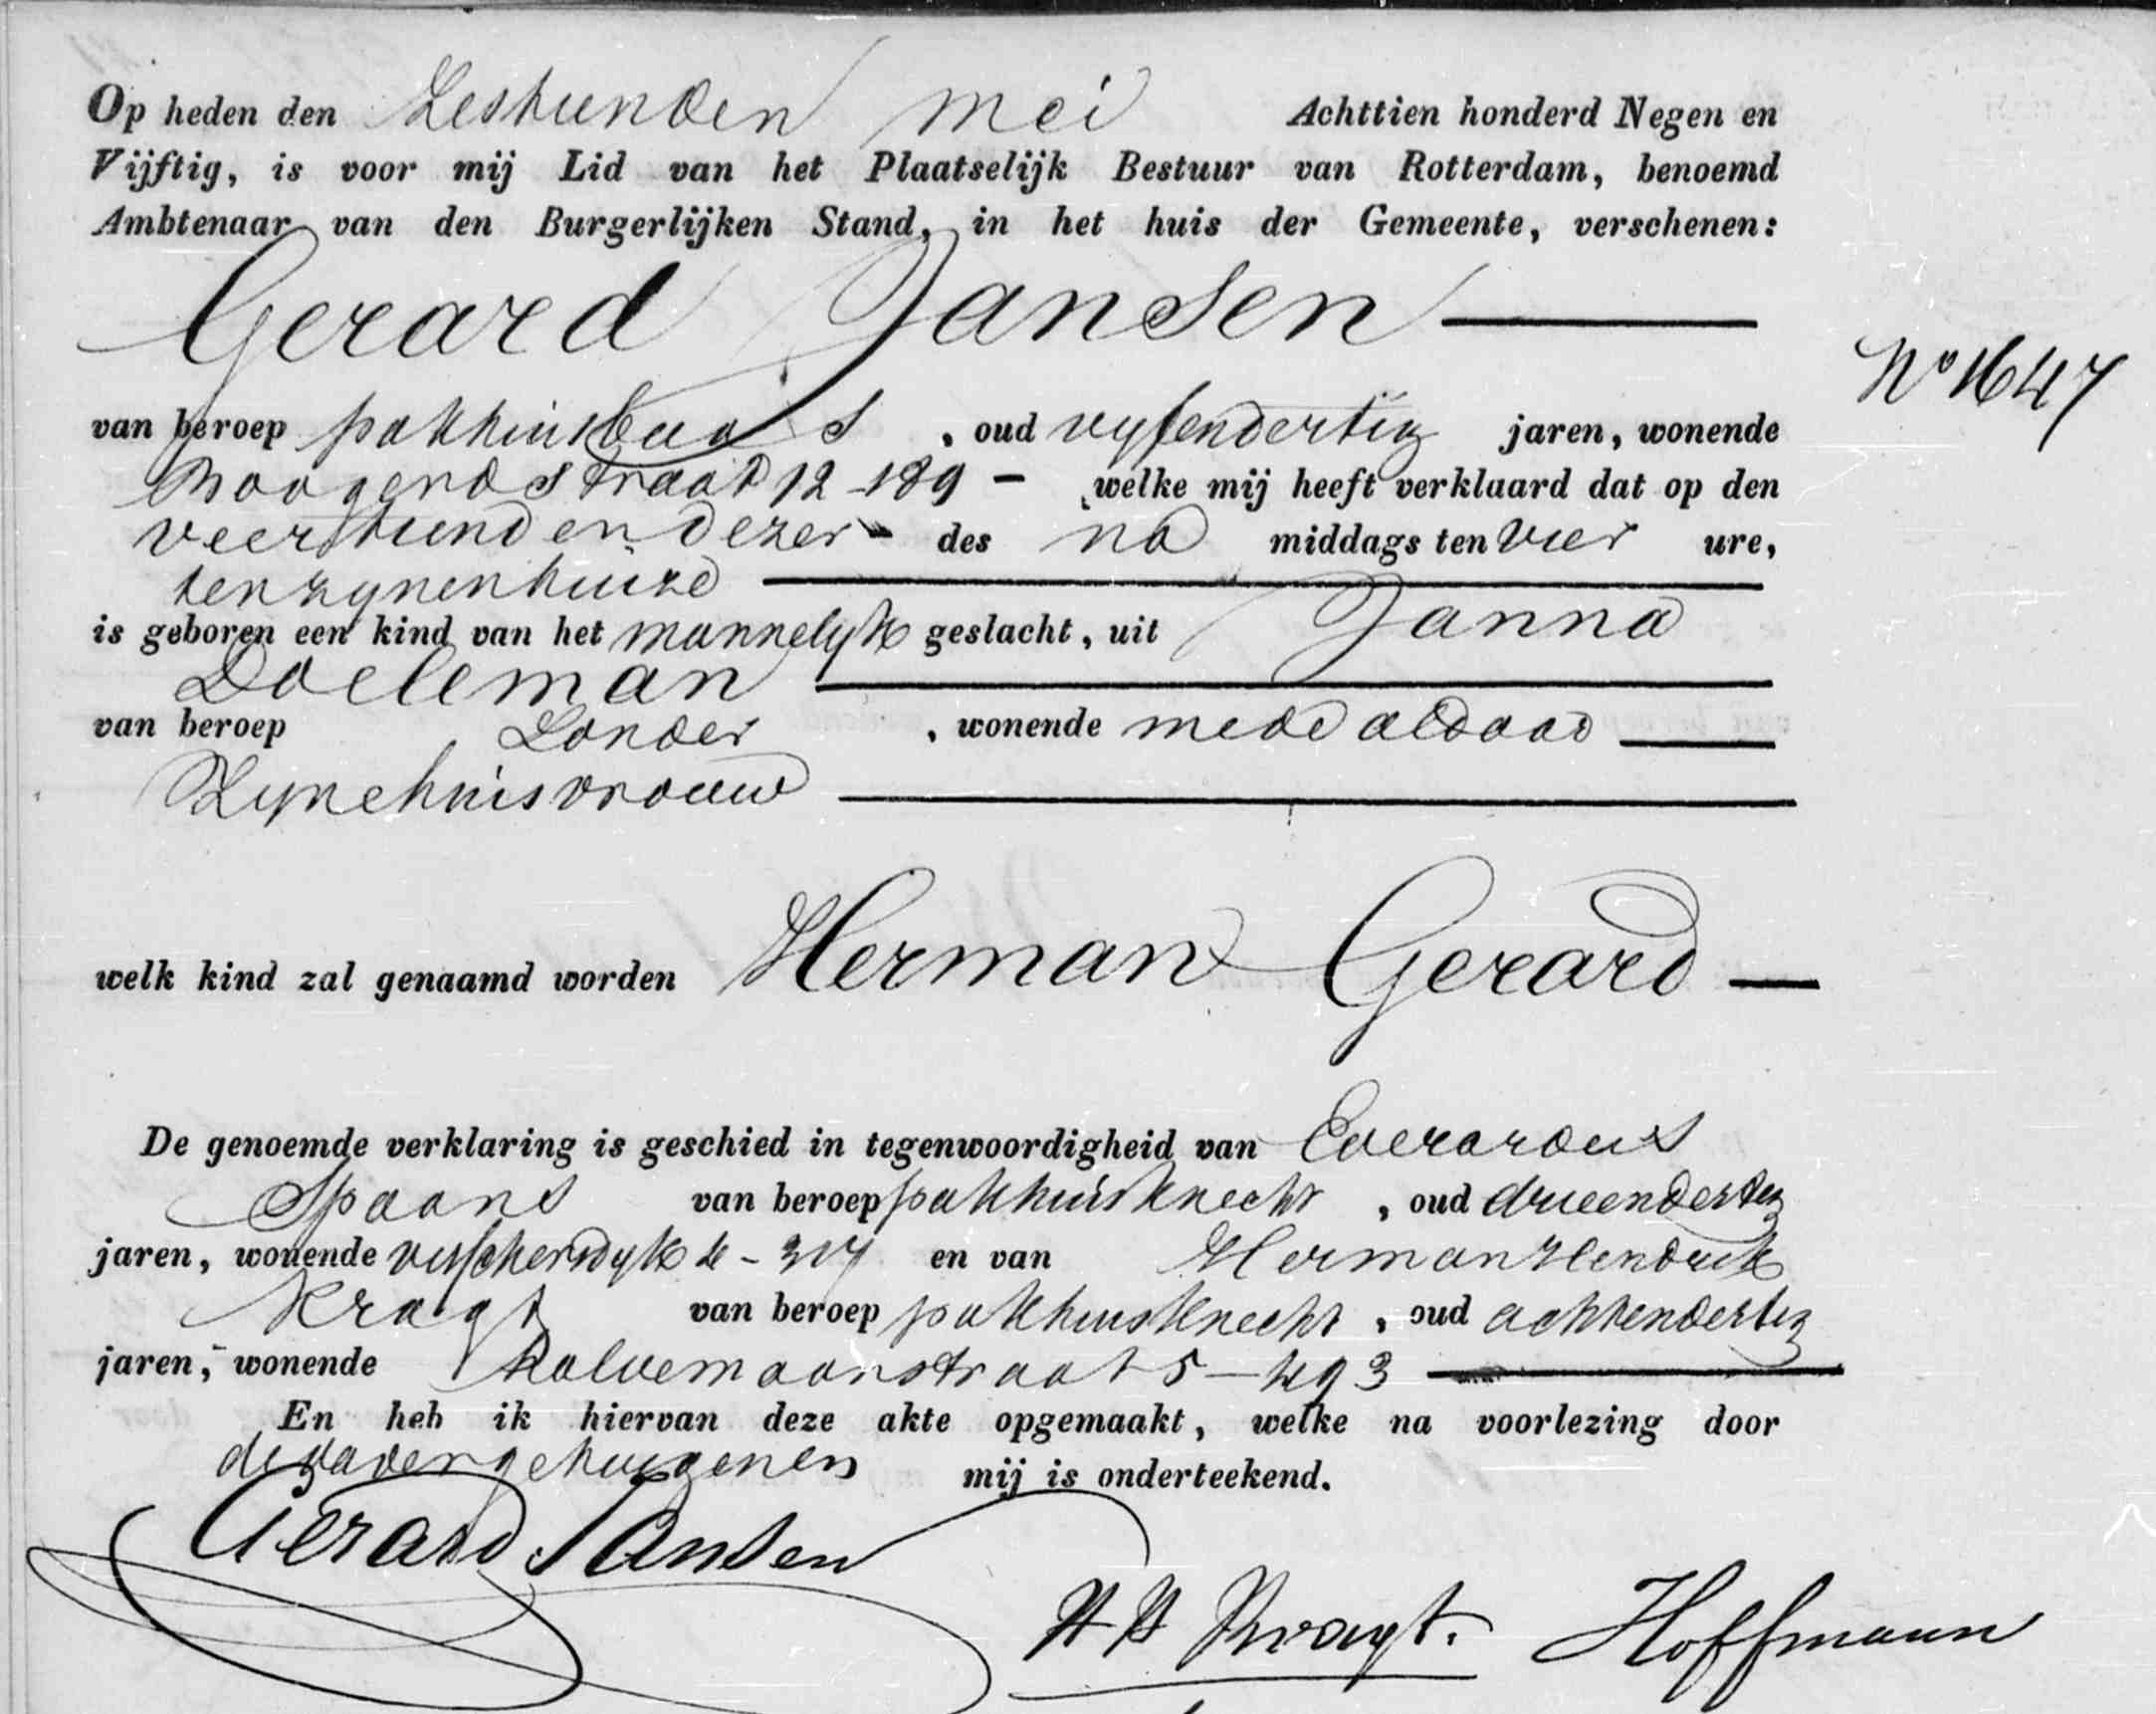 Op heden den Zestienden Mei Achttien honderd Negen en
Vijftig, is voor mij Lid van het Plaatselijk Bestuur van Rotterdam, benoemd
Ambtenaar van den Burgerlijken Stand, in het huis der Gemeente, verschenen:
Gerard Jansen
No 1647
van beroep pakhuisbaas, oud vyfendertig jaren, wonende
12-189 - welke mij heeft verklaard dat op den
veertienden dezer des na middags ten vier ure,
ten zynen huize
is geboren een kind van het mannelyk geslacht, uit Janna
Doeleman
van beroep Zonder, wonende mede aldaar
Zyne huisvrouw
welk kind zal genaamd worden Herman Gerard
De genoemde verklaring is geschied in tegenwoordigheid van Everardus
Spaans van beroep pakhuisknecht, oud drieendertig
jaren, wonende visschersdyk 4-317 en van Herman Hendrik
Kragt van beroep pakhuisknecht, oud achtendertig
jaren, wonende 5-493
En heb ik hiervan deze akte opgemaakt, welke na voorlezing door
de vader getuigen en mij is onderteekend.
Gerard Jansen
H H Kragt. Hoffmann